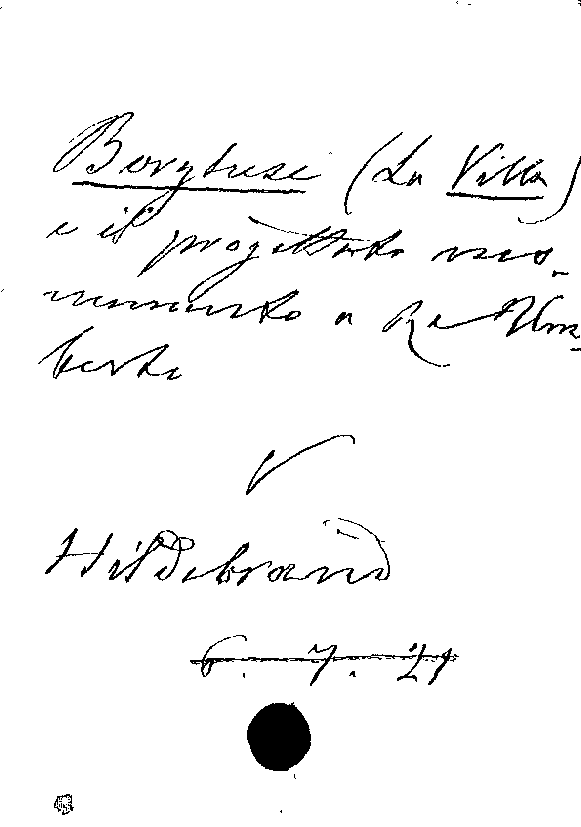 Borghese (La Villa)
e il progettato mo-
numento a Re Um-
berto
V
Hildebrand
6. 7. 21